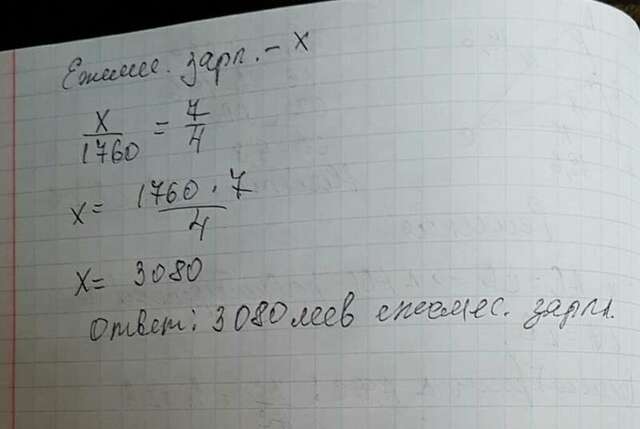 Ежемес. зарп. – x
x/1760 = 7/4
x = 1760 · 7/4
x = 3080
Ответ: 3080 леев ежемес. зарпл.